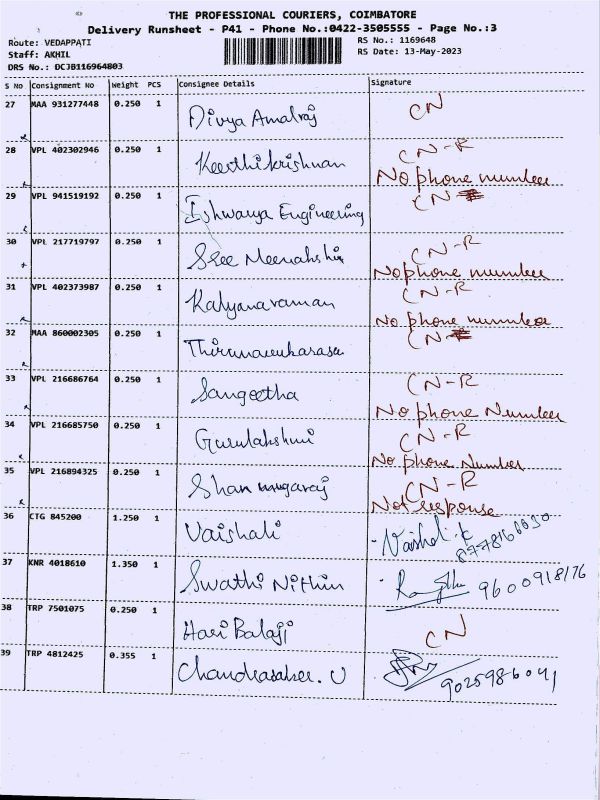 THE PROFESSIONAL COURIERS, COIMBATORE
Delivery Runsheet - P41 - Phone No.:0422-3505555 - Page No.:3
Route: VEDAPPATI
RS No.: 1169648
Staff: AKHIL
RS Date: 13-May-2023
DRS No.: DCJB116964803
S No Consignment No Weight PCS Consignee Details Signature
27 MAA 931277448 0.250 1 Divya Amalraj CN
28 VPL 402302946 0.250 1 Keerthikrishnan CN-R
No phone number
29 VPL 941519192 0.250 1 Ishwarya Engineering CN
30 VPL 217719797 0.250 1 Sree Meenakshi CN-R
No phone number
31 VPL 402373987 0.250 1 Kalyanaraman CN-R
No phone number
32 MAA 860002305 0.250 1 CN
33 VPL 216686764 0.250 1 Sangeetha CN-R
No phone Number
34 VPL 216685750 0.250 1 Gurulakshmi CN-R
No phone Number
35 VPL 216894325 0.250 1 Shanmugaraj CN-R
Not response
36 CTG 845200 1.250 1 Vaishali
37 KNR 4018610 1.350 1 Swathi Nithin 9600918176
38 TRP 7501075 0.250 1 Hari Balaji CN
39 TRP 4812425 0.355 1 Chandrasaker. U 9025986041